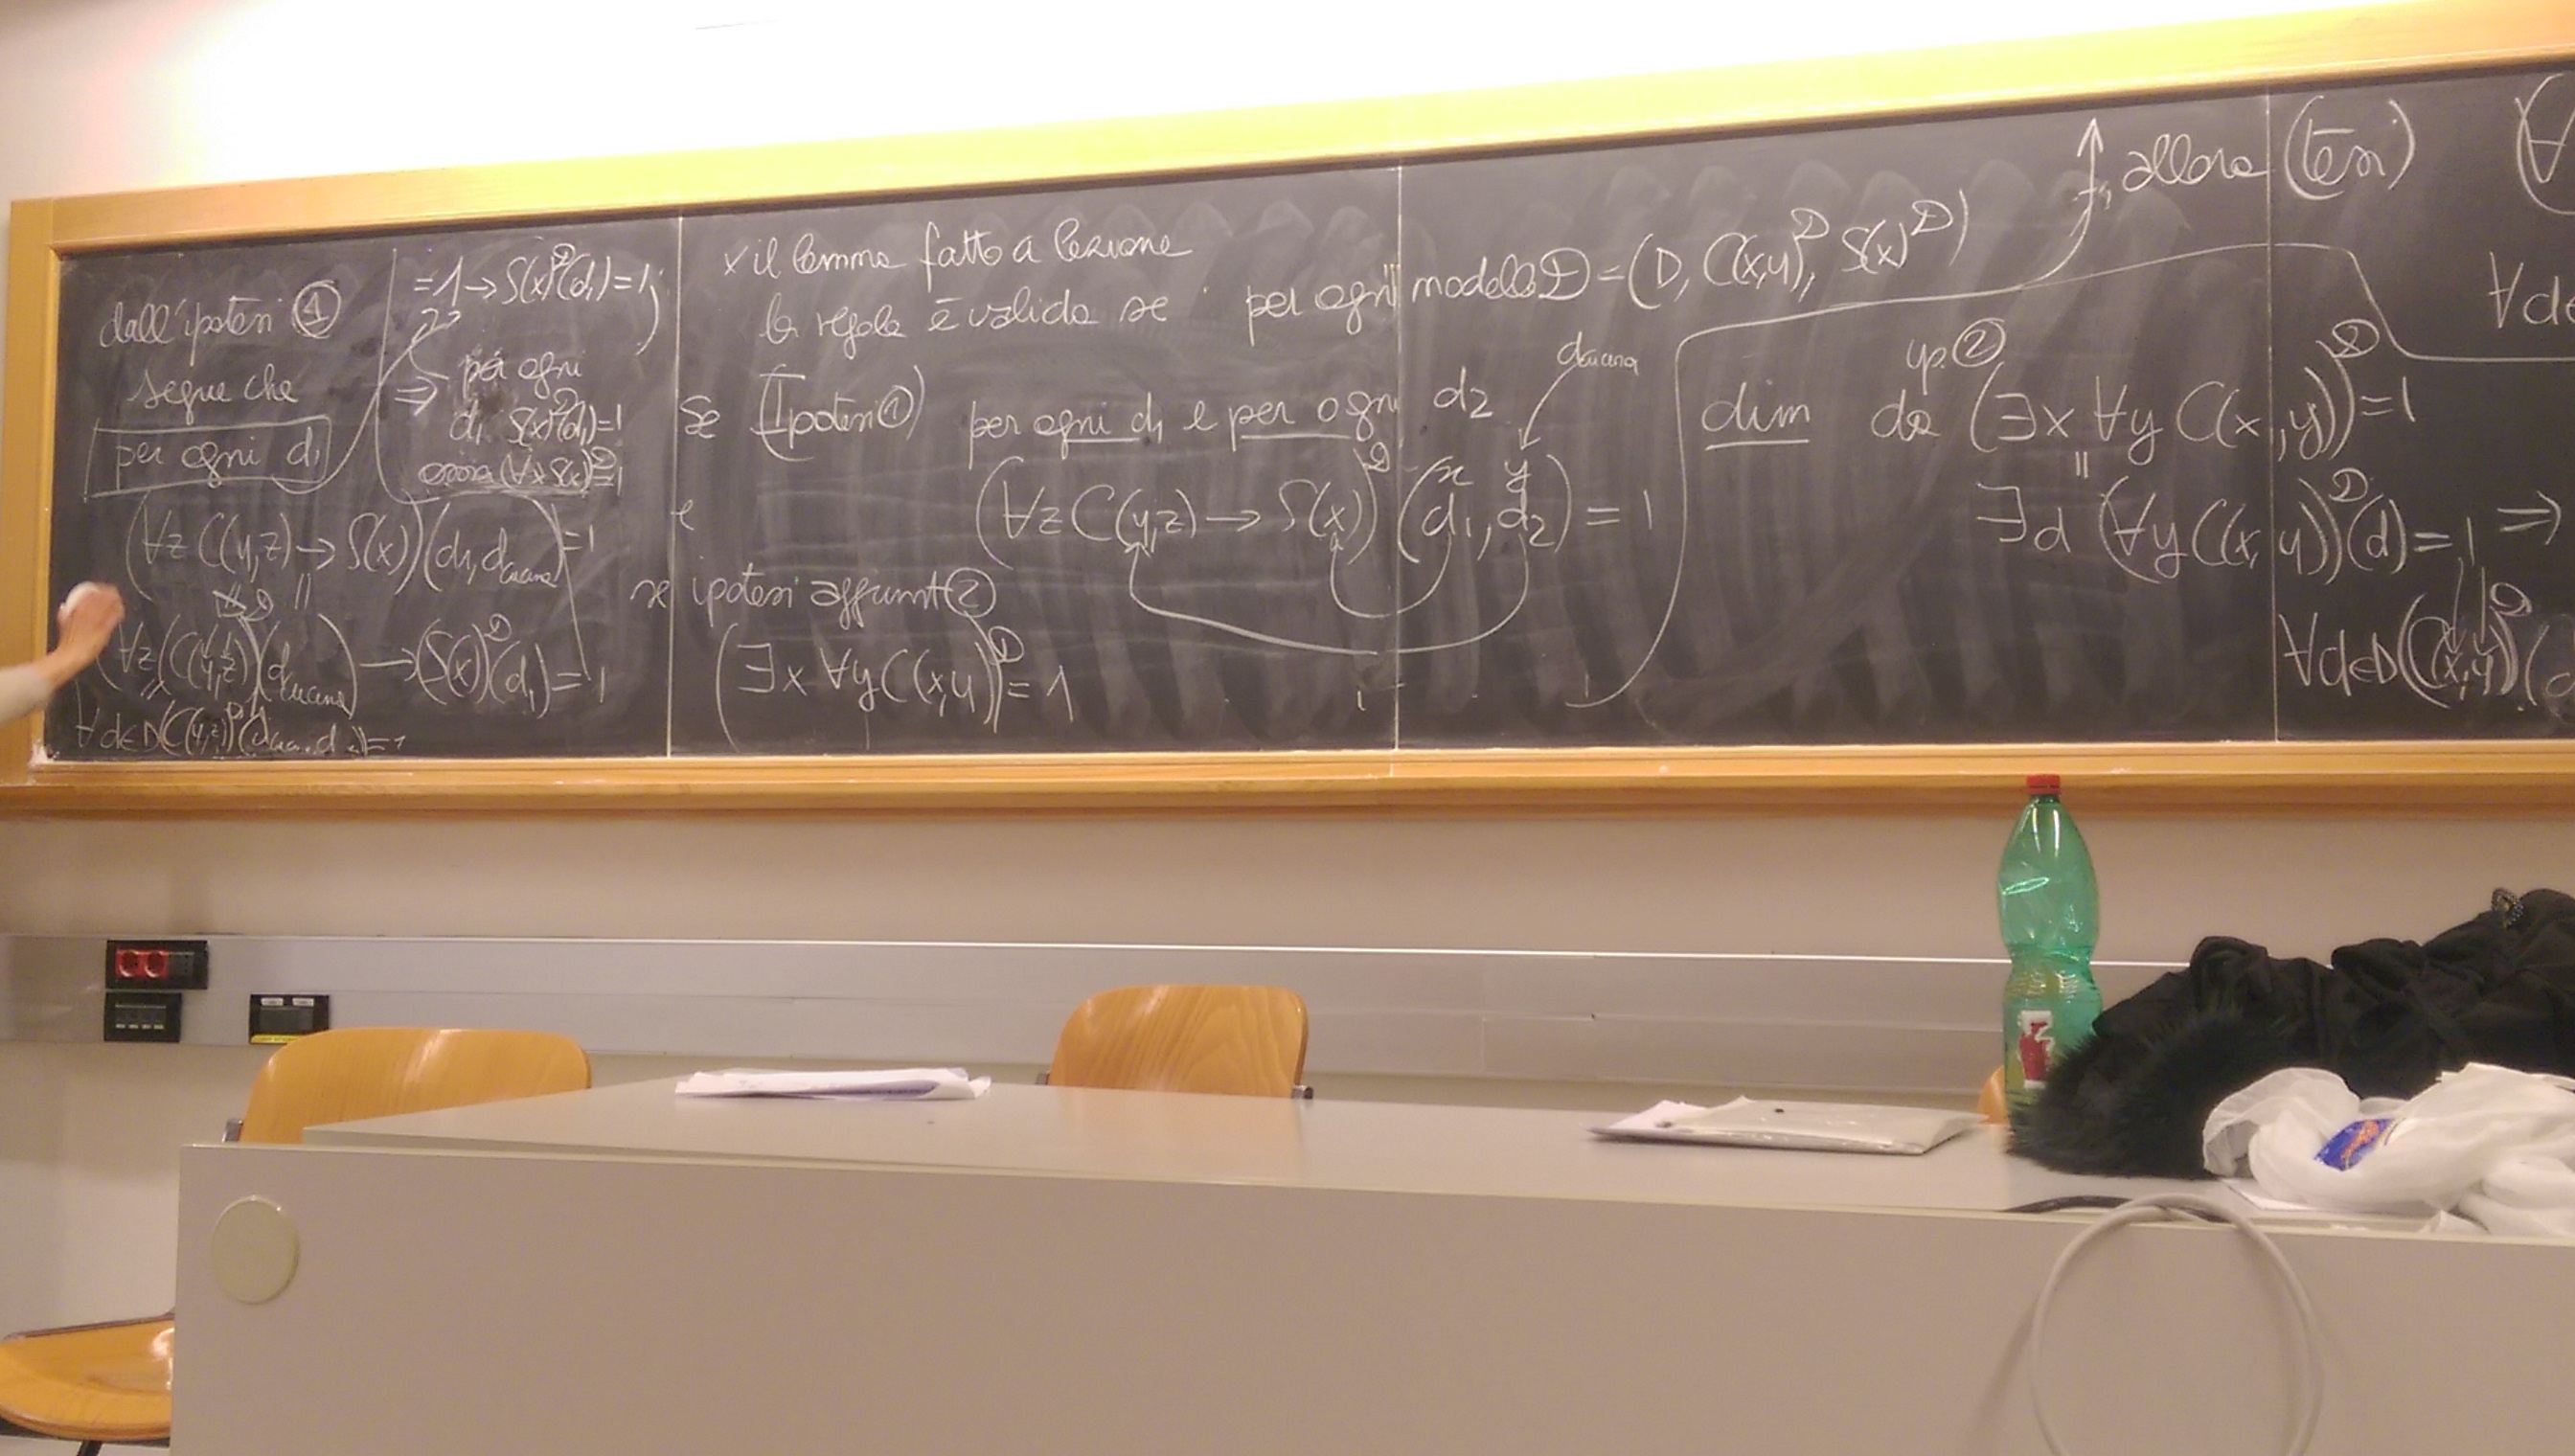 dall'ipotesi ①
segue che
per ogni d₁
(∀z C(y,z) → S(x))(d₁, d_{lucana}) = 1
||
∀z (C(y,z))^𝒟(d_{lucana}) → (S(x))^𝒟(d₁) = 1
||
∀d∈D (C(y,z))^𝒟(d_{luca}, d) = 1
= 1 → S(x)^𝒟(d₁) = 1
⇒ per ogni
d₁ S(x)^𝒟(d₁) = 1
ossia (∀x S(x))^𝒟 = 1
x il lemma fatto a lezione
la regola è valida se per ogni modello 𝒟 = (D, C(x,y)^𝒟, S(x)^𝒟)
se (Ipotesi ①) per ogni d₁ e per ogni d₂
x y
(∀z C(y,z) → S(x))^𝒟 (d₁, d₂) = 1
e
se ipotesi affiunt ②
(∃x ∀y C(x,y))^𝒟 = 1
allora (tesi) (∀
∀d
dim da yp. ② (∃x ∀y C(x,y))^𝒟 = 1
||
∃d (∀y C(x,y))^𝒟(d) = 1 ⇒
∀d∈D (C(x,y))^𝒟 (